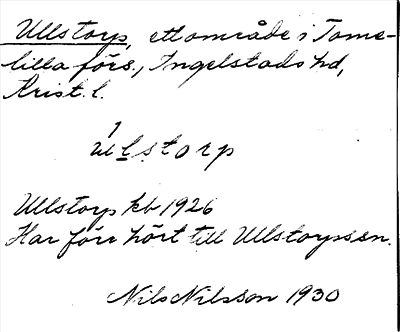 Ullstorp, ett område i Tome-
lilla förs., Ingelstads hd,
Krist. l.
ulstorp
Ullstorp kb 1926
Har förr hört till Ullstorpssn.
Nils Nilsson 1930